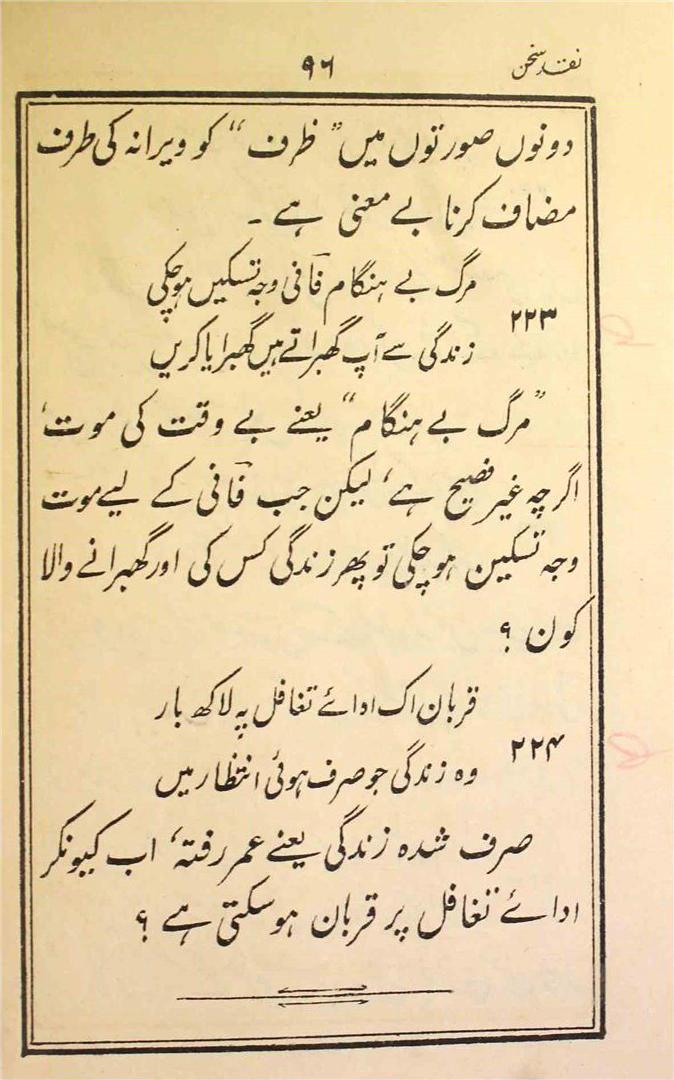 نقد سخن
۹۶
دونوں صورتوں میں ”ظرف“ کو ویرانہ کی طرف
مضاف کرنا بے معنی ہے ۔
مرگ بے ہنگام فانؔی وجہ تسکیں ہوچکی
۲۲۳
زندگی سے آپ گھبراتے ہیں گھبرایا کریں
”مرگ بے ہنگام“ یعنے بے وقت کی موت،
اگرچہ غیر فصیح ہے، لیکن جب فانؔی کے لیے موت
وجہ تسکین ہوچکی تو پھر زندگی کس کی اور گھبرانے والا
کون ؟
قربان اک ادائے تغافل پہ لاکھ بار
۲۲۴
وہ زندگی جو صرف ہوئی انتظار میں
صرف شدہ زندگی یعنے عمر رفتہ، اب کیونکر
ادائے تغافل پر قربان ہوسکتی ہے ؟